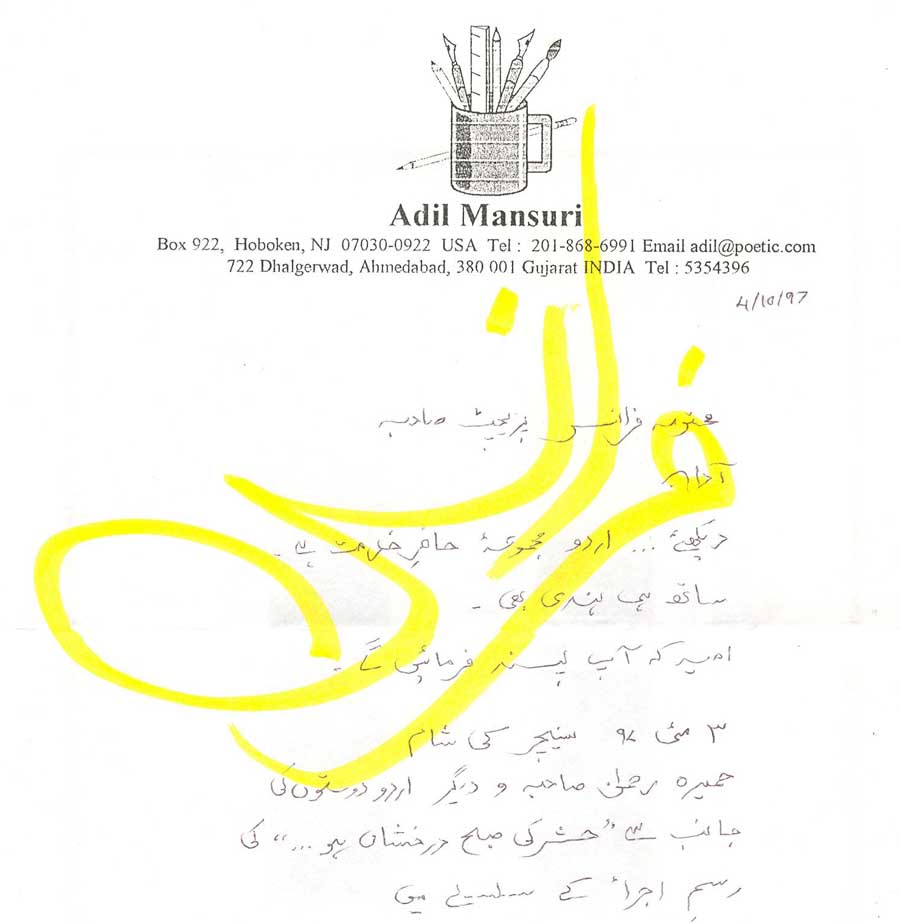 Adil Mansuri
Box 922, Hoboken, NJ 07030-0922 USA Tel : 201-868-6991 Email adil@poetic.com
722 Dhalgerwad, Ahmedabad, 380 001 Gujarat INDIA Tel : 5354396
4/10/97
محترمہ فرانسس پریچٹ صاحبہ
آداب
دیکھئے ... اردو مجموعۂ حاضرِ خدمت ہے۔
ساتھ ہی ہندی بھی۔
امید کہ آپ پسند فرمائیں گے۔
۳ مئی ۹۷ سنیچر کی شام
حمیرہ رحمٰن صاحبہ و دیگر اردو دوستوں کی
جانب سے "حشر کی صبح درخشاں ہو..." کی
رسمِ اجراء کے سلسلے میں
فرانسس